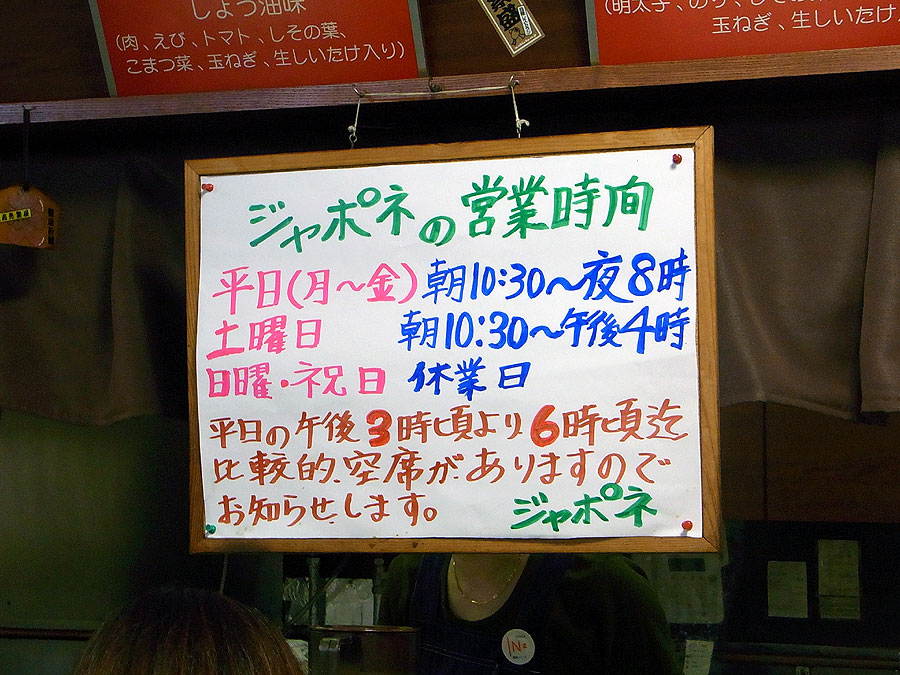 しょう油味
(肉、えび、トマト、しその葉、
こまつ菜、玉ねぎ、生しいたけ入り)
玉ねぎ、生しいたけ
ジャポネの営業時間
平日(月〜金)朝10:30〜夜8時
土曜日 朝10:30〜午後4時
日曜・祝日 休業日
平日の午後3時頃より、6時頃迄
比較的、空席がありますので
お知らせします。
ジャポネ